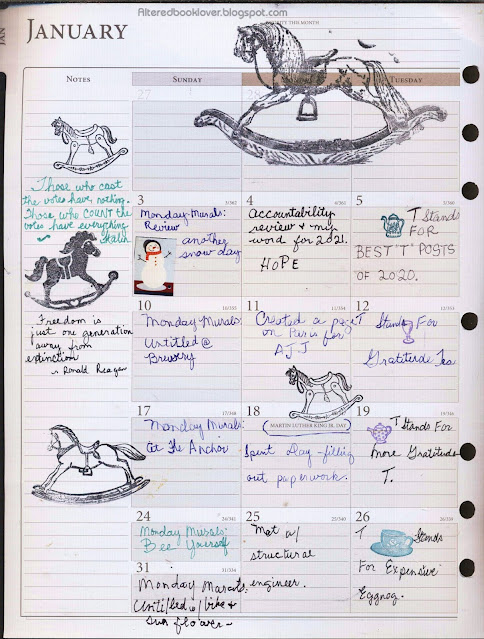 Alteredbooklover.blogspot.com
JAN
JANUARY
THIS MONTH
NOTES
SUNDAY
TUESDAY
27
28
Those who cast
the votes have nothing.
Those who COUNT the
votes have everything
Stalin
Freedom is
just one generation
away from
extinction
~ Ronald Reagan
3
3/362
Monday Murals:
Review
another
snow day
4
4/361
Accountability
review & my
word for 2021.
HOPE
5
5/360
T Stands
FOR
BEST "T" POSTS
OF 2020.
10
10/355
Monday Murals:
Untitled @
Brewery
11
11/354
Created a page
on Paris for
AJJ
12
12/353
T
Stands For
Gratitude Tea
17
17/348
Monday Murals:
At The Anchor
18
MARTIN LUTHER KING JR. DAY
Spent day filling
out paperwork.
19
19/346
T Stands For
More Gratitude
T.
24
24/341
Monday Murals:
Bee Yourself
25
25/340
Met w/
structural
engineer.
26
26/339
T
Stands
For Expensive
Eggnog.
31
31/334
Monday Murals:
Untitled w/ bike &
sun flower~